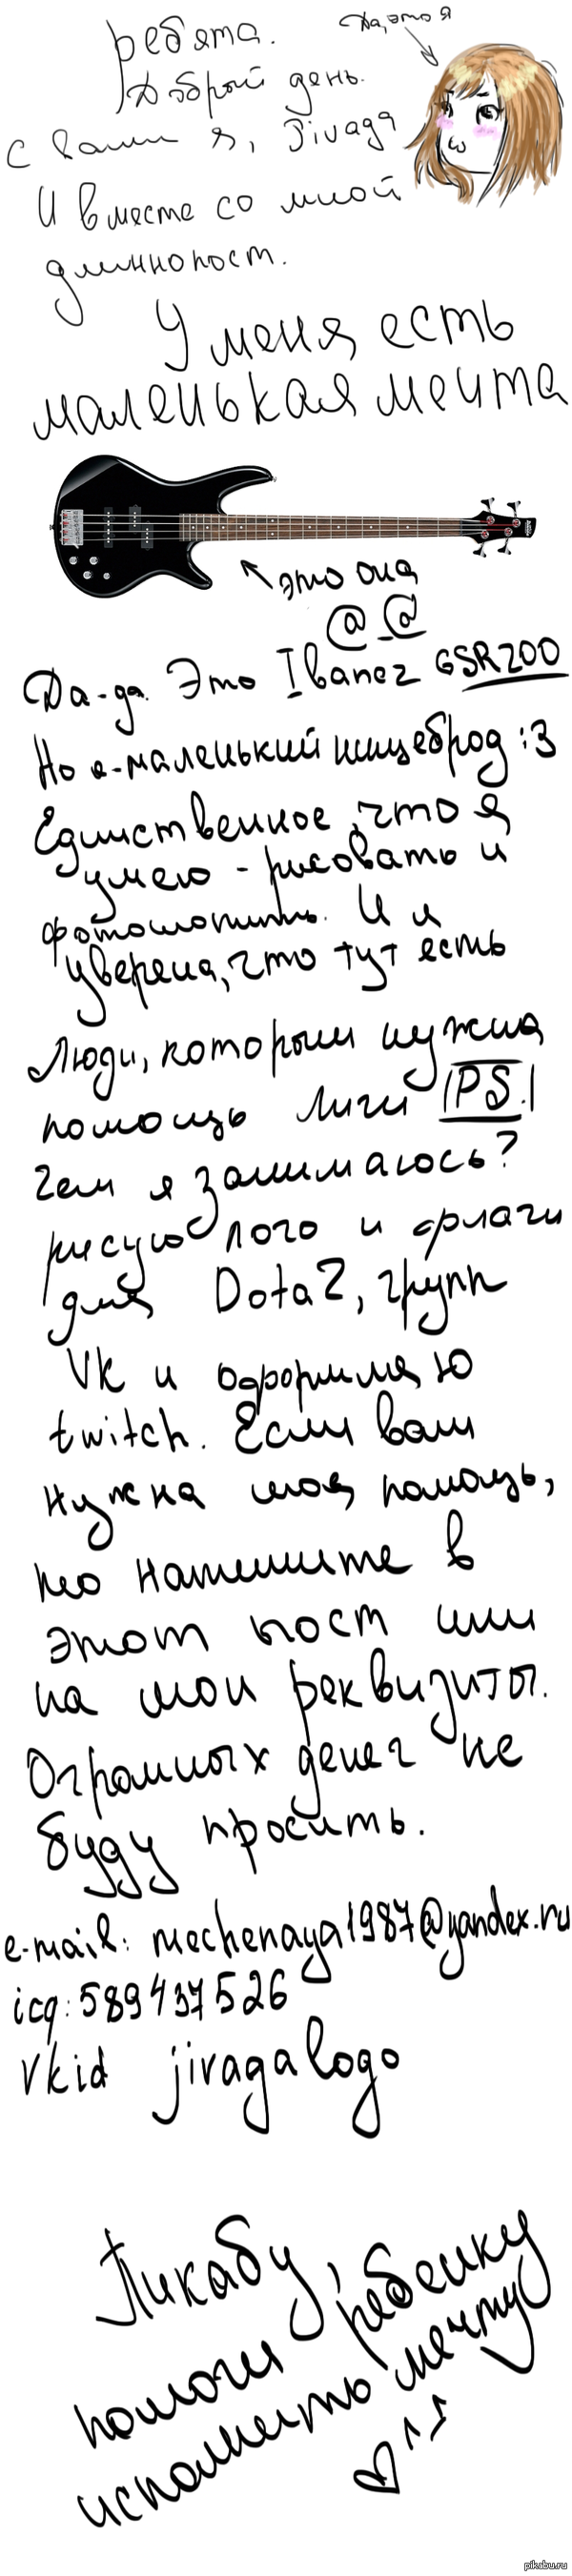 Да, это я
ребята.
Добрый день.
С вами я, Jivaga
И вместе со мной
длиннопост.
У меня есть
маленькая мечта
это она
@_@
Да-да. Это Ibanez GSR200
Но я-маленький нищеброд :3
Единственное, что я
умею - рисовать и
фотошопить. И я
уверена, что тут есть
Люди, которым нужна
помощь лиги |PS|
Чем я занимаюсь?
рисую лого и флаги
для Dota2, групп
VK и оформляю
twitch. Если вам
нужна моя помощь,
то напишите в
этот пост или
на мои реквизиты.
Огромных денег не
буду просить.
e-mail: mechenaya1987@yandex.ru
icq: 589437526
Vkid jivagalogo
Пикабу,
помоги ребенку
исполнить мечту
♡^^
pikabu.ru